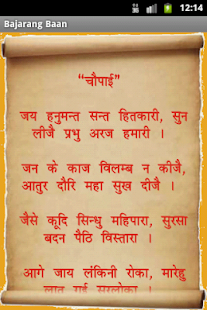 12:14
Bajarang Baan
“चौपाई”
जय हनुमन्त सन्त हितकारी, सुन
लीजै प्रभु अरज हमारी ।
जन के काज विलम्ब न कीजै,
आतुर दौरि महा सुख दीजै ।
जैसे कूदि सिन्धु महिपारा, सुरसा
बदन पैठि विस्तारा ।
आगे जाय लंकिनी रोका, मारेहु
लात गई सुरलोका ।